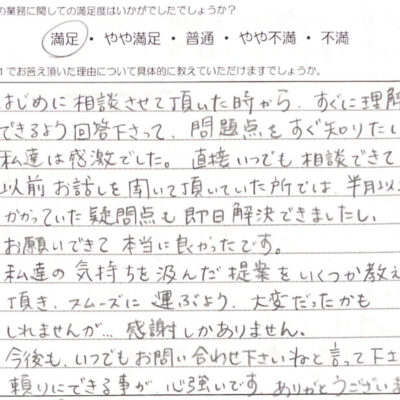 の業務に関しての満足度はいかがでしたでしょうか？
満足・やや満足・普通・やや不満・不満
1でお答え頂いた理由について具体的に教えていただけますでしょうか。
はじめに相談させて頂いた時から、すぐに理解
できるよう回答下さって、問題点をすぐ知りたい
私達は感激でした。直接いつでも相談できて
以前お話しを聞いて頂いていた所では、半月以上
かかっていた疑問点も即日解決できましたし、
お願いできて本当に良かったです。
私達の気持ちを汲んだ提案をいくつか教え
頂き、スムーズに運ぶよう、大変だったかも
しれませんが…感謝しかありません。
今後も、いつでもお問い合わせ下さいねと言って下さ
頼りにできる事が、心強いです。ありがとうございま